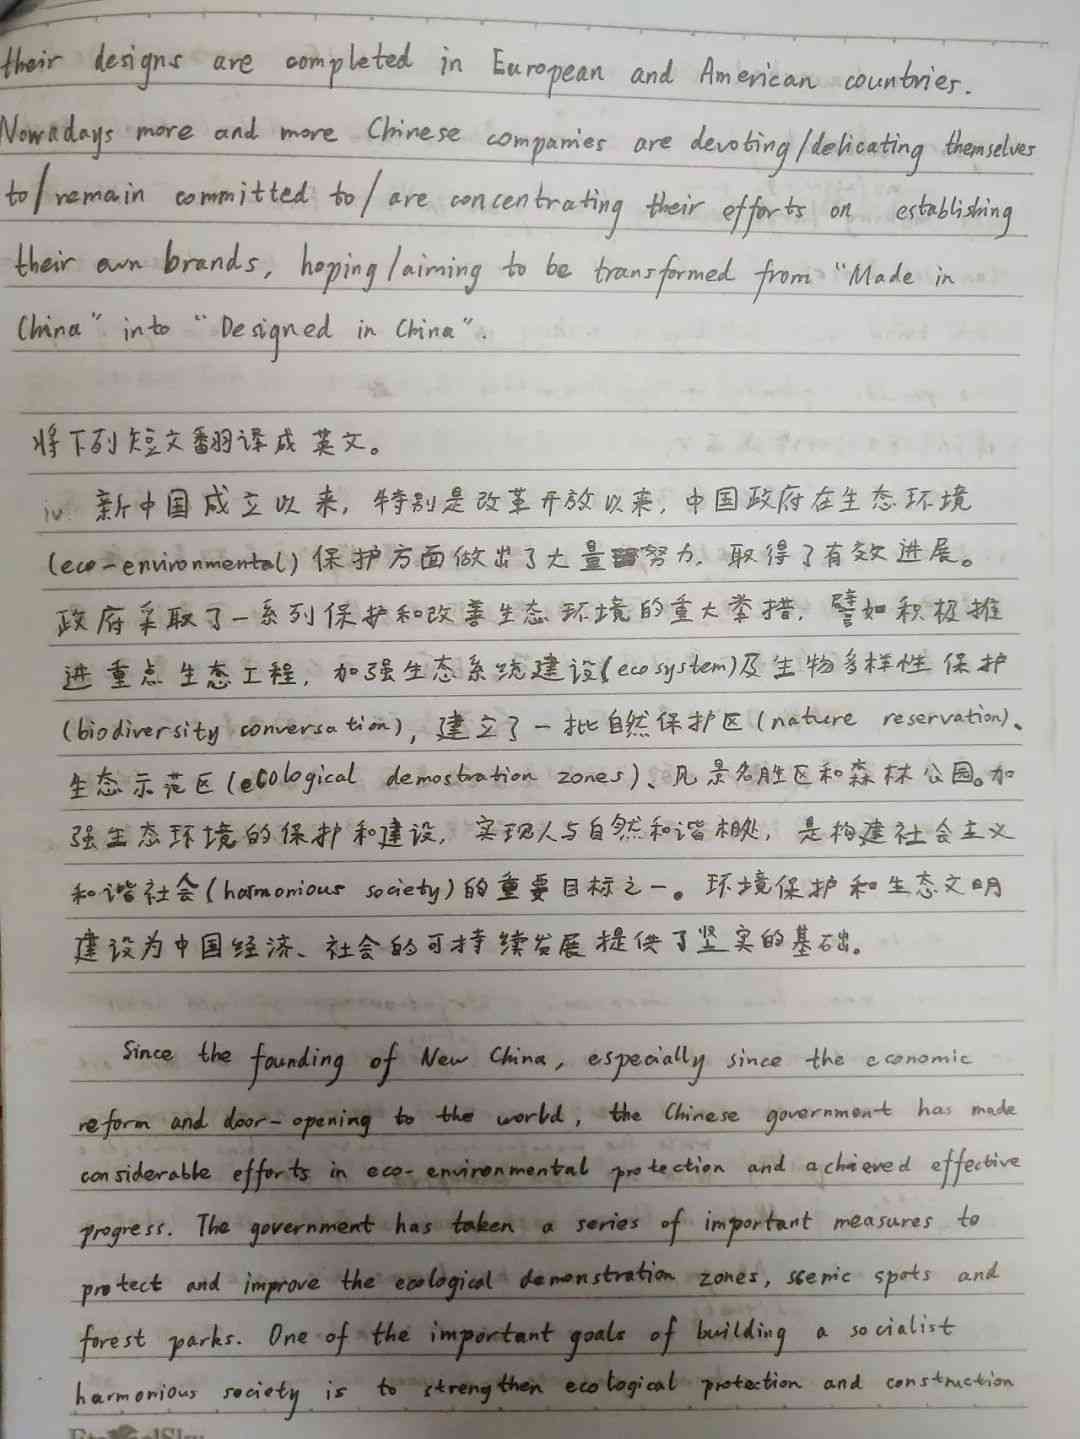 their designs are completed in European and American countries.
Nowadays more and more Chinese companies are devoting/delicating themselves
to/remain committed to/are concentrating their efforts on establishing
their own brands, hoping/aiming to be transformed from "Made in
China" into "Designed in China".
将下列短文翻译成英文。
iv. 新中国成立以来,特别是改革开放以来,中国政府在生态环境
(eco-environmental)保护方面做出了大量努力,取得了有效进展。
政府采取了一系列保护和改善生态环境的重大举措,譬如积极推
进重点生态工程,加强生态系统建设(ecosystem)及生物多样性保护
(biodiversity conversation),建立了一批自然保护区(nature reservation)、
生态示范区(ecological demostration zones)、风景名胜区和森林公园。加
强生态环境的保护和建设,实现人与自然和谐相处,是构建社会主义
和谐社会(harmonious society)的重要目标之一。环境保护和生态文明
建设为中国经济、社会的可持续发展提供了坚实的基础。
Since the founding of New China, especially since the economic
reform and door-opening to the world, the Chinese government has made
considerable efforts in eco-environmental protection and achieved effective
progress. The government has taken a series of important measures to
protect and improve the ecological demonstration zones, scenic spots and
forest parks. One of the important goals of building a socialist
harmonious society is to strengthen ecological protection and construction